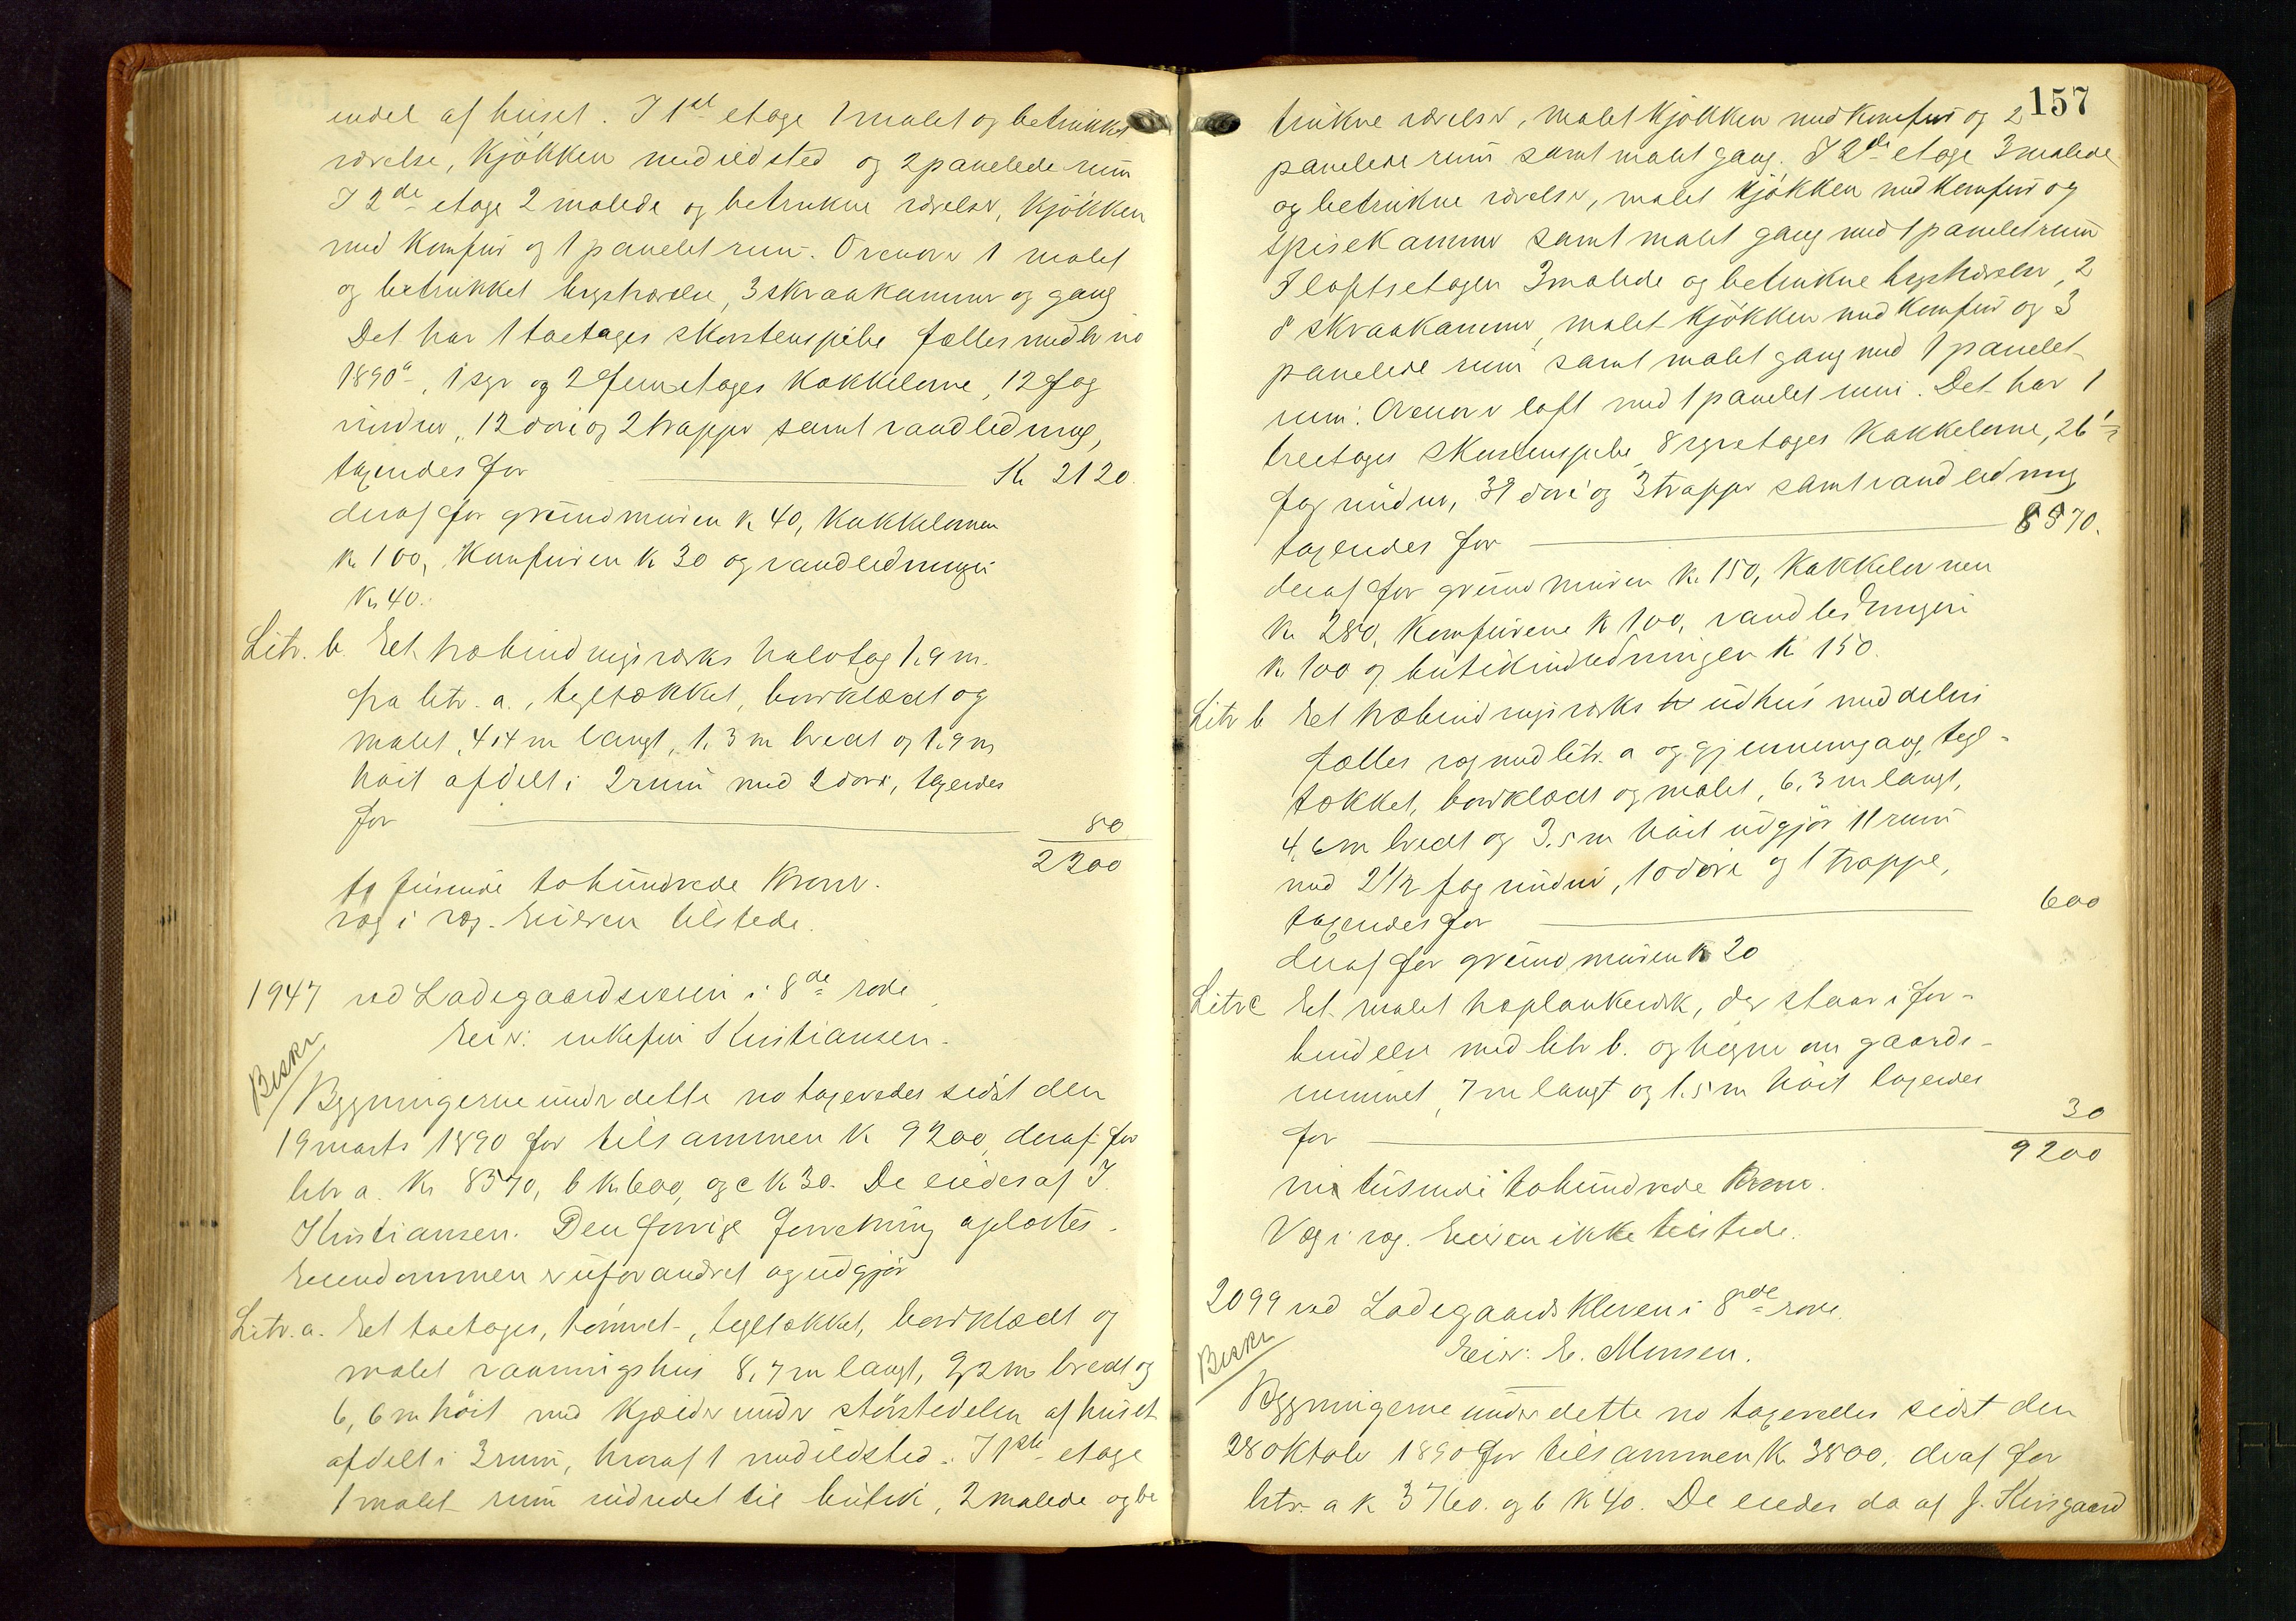 endel af huset. I 1ste etage 1 malet og betrukket
værelse, kjökken med ildsted og 2 panelede rum
I 2de etage 2 malede og betrukne værelser, kjökken
med komfur og 1 panelet rum. Ovenover 1 malet
og betrukket kvistværelse, 3 skraakammer og gang
Det har 1 toetages skorstenspibe fælles med br no
1890a, 1 og 2 femetages kakkelovne, 12 fag
vinduer, 12 döre og 2 trapper samt vandledning,
taxeredes for Kr 2120.
deraf for grundmuren kr 40, kakkelovnen
kr 100, Komfuren kr 30 og vandledningen
Kr 40.
Litr. b. Et halvtag 1.9 m.
fra litr. a., tegltækket, bordklædt og
malet, 4,4 m langt, 1,3 m bredt og 1.9 m
höit afdelt i 2 rum med 2 döre, taxeredes
for 80
2200
to tusende tohundrede Kroner.
væg i væg. Eieren tilstede.
1947 ved Ladegaardsveien i 8de rode
Beskr
Eier: enkefru Kristiansen.
Bygningerne under dette no taxeredes sidst den
19 marts 1890 for tilsammen K 9200, deraf for
litr a. Kr 8570, b K 600, og c K 30. De eiedes af I.
Kristiansen. Den forrige forretning oplæstes.
Eiendommen er uforandret og udgjör
Litr. a. Et toetages, tömret-, tegltækket, bordklædt og
malet vaaningshus 8,7 m langt, 9,2 m bredt og
6,6 m höit med kjælder under störstedelen af huset
afdelt i 3 rum, hvoraf 1 med ildsted. I 1ste etage
1 malet rum indredet til butik, 2 malede og be
157
trukne værelser, malet kjökken med komfur og 2
panelede rum samt malet gang. I 2de etage 3 malede
og betrukne værelser, malet kjökken med komfur og
spisekammer samt malet gang med 1 panelet rum
I loftsetagen 3 malede og betrukne kvistværelser, 2
skraakammer, malet kjökken med komfur og 3
panelede rum samt malet gang med 1 panelet
rum. Ovenover loft med 1 panelet rum. Det har 1
treetages skorstenspibe, 8 kakkelovne, 26 1/2
fag vinduer, 39 döre og 3 trapper samt vandledning
taxeredes for 8570.
deraf for grundmuren Kr. 150, kakkelovnen
Kr 280, komfurene K 100, vandledningen
K 100 og butikindredningen K 150.
Litr b Et udhus med delvis
fælles væg med litr. a og gjennemgang, tegl-
tækket, bordklædt og malet, 6,3 m langt,
4,6 m bredt og 3,5 m höit udgjör 11 rum
med 2 1/2 fag vinduer, 10 döre og 1 trappe,
taxeredes for 600
deraf for grundmuren K 20
Litr c Et malet der staar i for-
bindelse med litr b. og hegner om gaards-
rummet, 7 m langt og 1.5 m höit taxeredes
for 30
9200
ni tusende tohundrede Kroner.
Væg i væg. Eieren ikke tilstede.
2099 ved Ladegaards Kleven i 8de rode
Beskr
Eier: E. Monsen.
Bygningerne under dette no taxeredes sidst den
28 oktober 1890 for tilsammen K. 3800, deraf for
litr. a K 3760. og b K 40. De eiedes da af J.